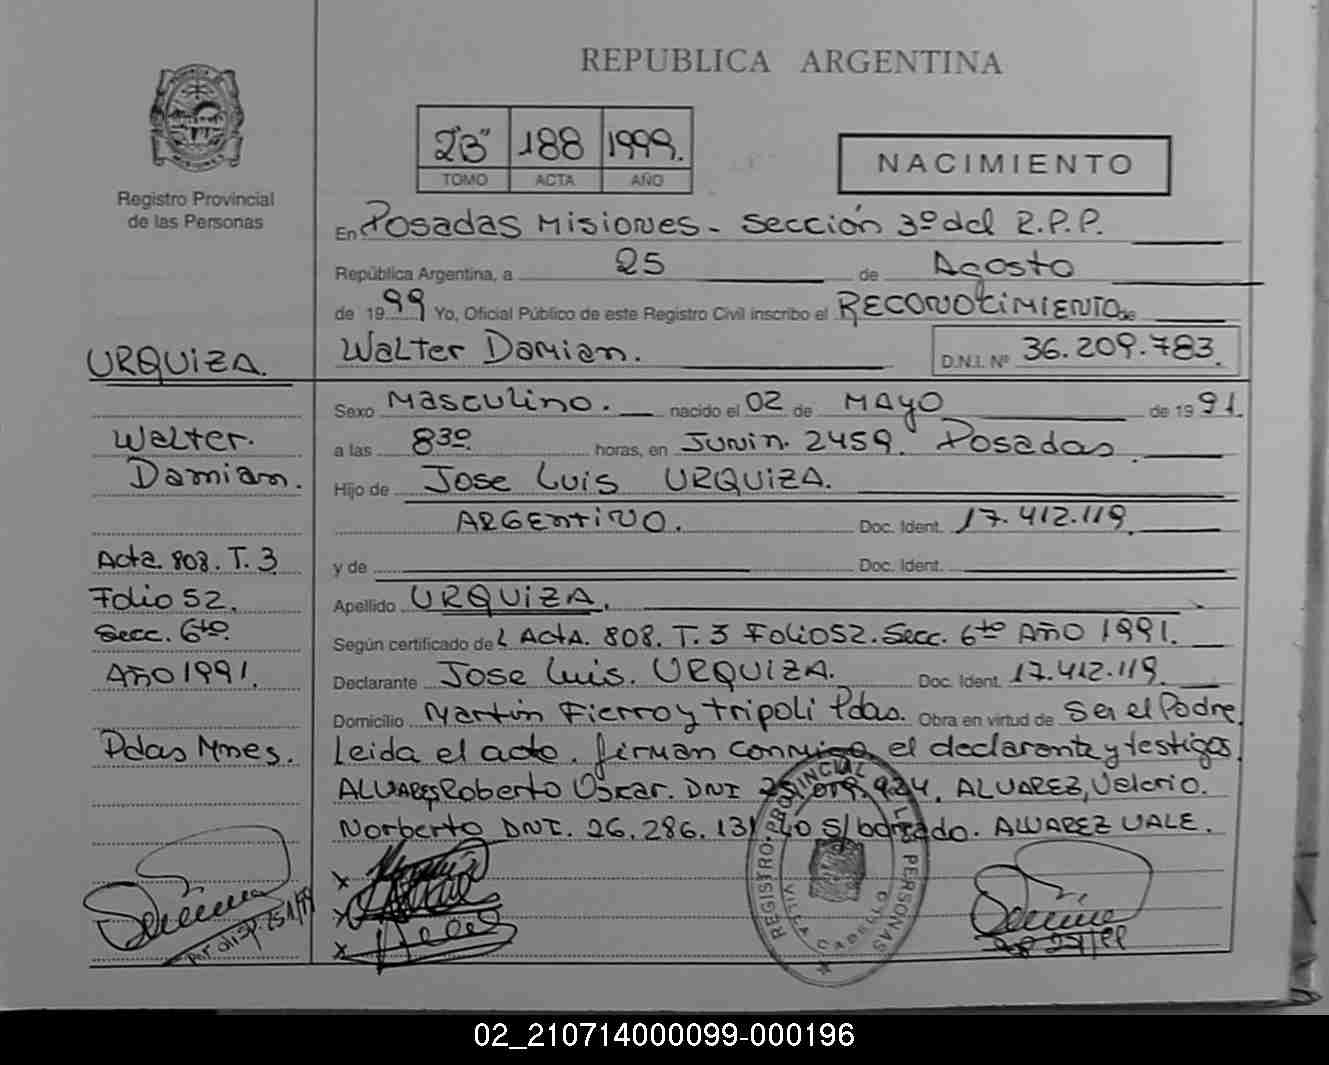 REPUBLICA ARGENTINA
2"B" 188 1999.
TOMO ACTA AÑO
NACIMIENTO
Registro Provincial
de las Personas
En Posadas Misiones - Sección 3º del R.P.P.
República Argentina, a 25 de Agosto
de 1999 Yo, Oficial Público de este Registro Civil inscribo el RECONOCIMIENTO de
Walter Damian. D.N.I. Nº 36.209.783.
URQUIZA.
Walter.
Damian.
Acta. 808. T. 3
Folio 52.
Secc. 6to.
AÑO 1991.
Pdas Mnes.
Sexo Masculino. nacido el 02 de MAYO de 1991.
a las 830 horas, en Junin. 2459. Posadas.
Hijo de Jose Luis URQUIZA.
ARGENTINO. Doc. Ident. 17.412.119
y de Doc. Ident.
Apellido URQUIZA.
Según certificado de L ActA. 808. T. 3 Folio 52. Secc. 6to AÑO 1991.
Declarante Jose Luis. URQUIZA. Doc. Ident. 17.412.119.
Domicilio Martin Fierro y tripoli Pdas. Obra en virtud de Ser el Padre
Leida el acta. firman conmigo el declarante y testigos.
ALVARES, Roberto Oscar. DNI ALVAREZ, Valerio.
Norberto DNI. 26.286.131 s/borrado. ALVAREZ VALE.
REGISTRO PROVINCIAL DE LAS PERSONAS
VILLA CABELLO
02_210714000099-000196